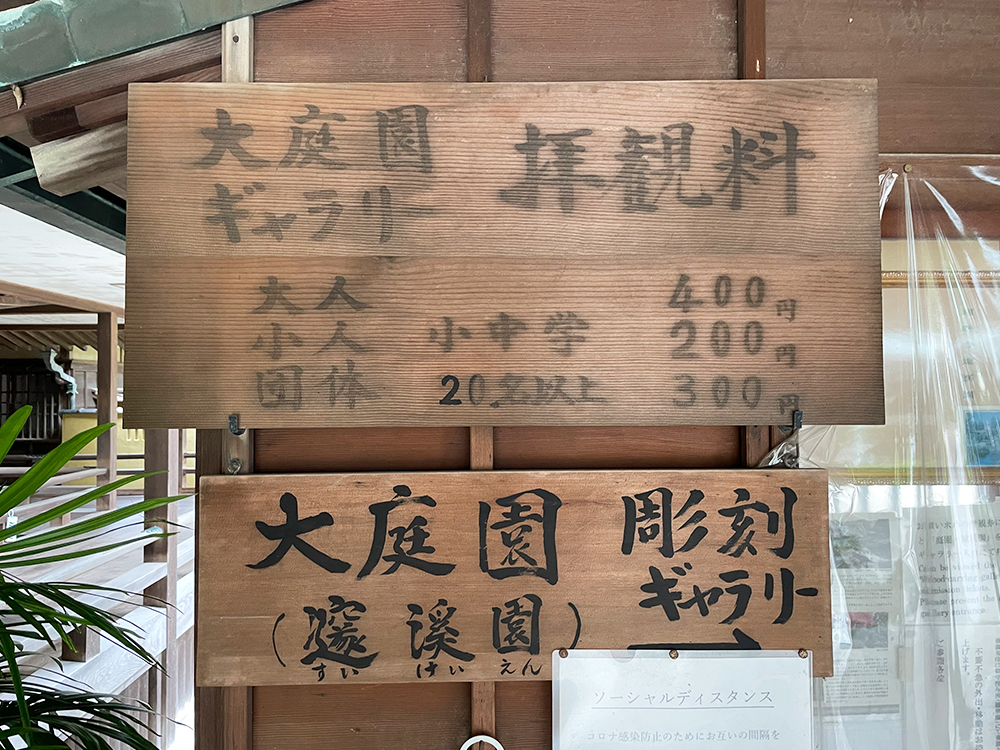 大庭園
ギャラリー
拝観料
大人 400円
小人 小中学 200円
団体 20名以上 300円
大庭園
(邃溪園)
すい けい えん
彫刻
ギャラリー
ソーシャルディスタンス
コロナ感染防止のためにお互いの間隔を